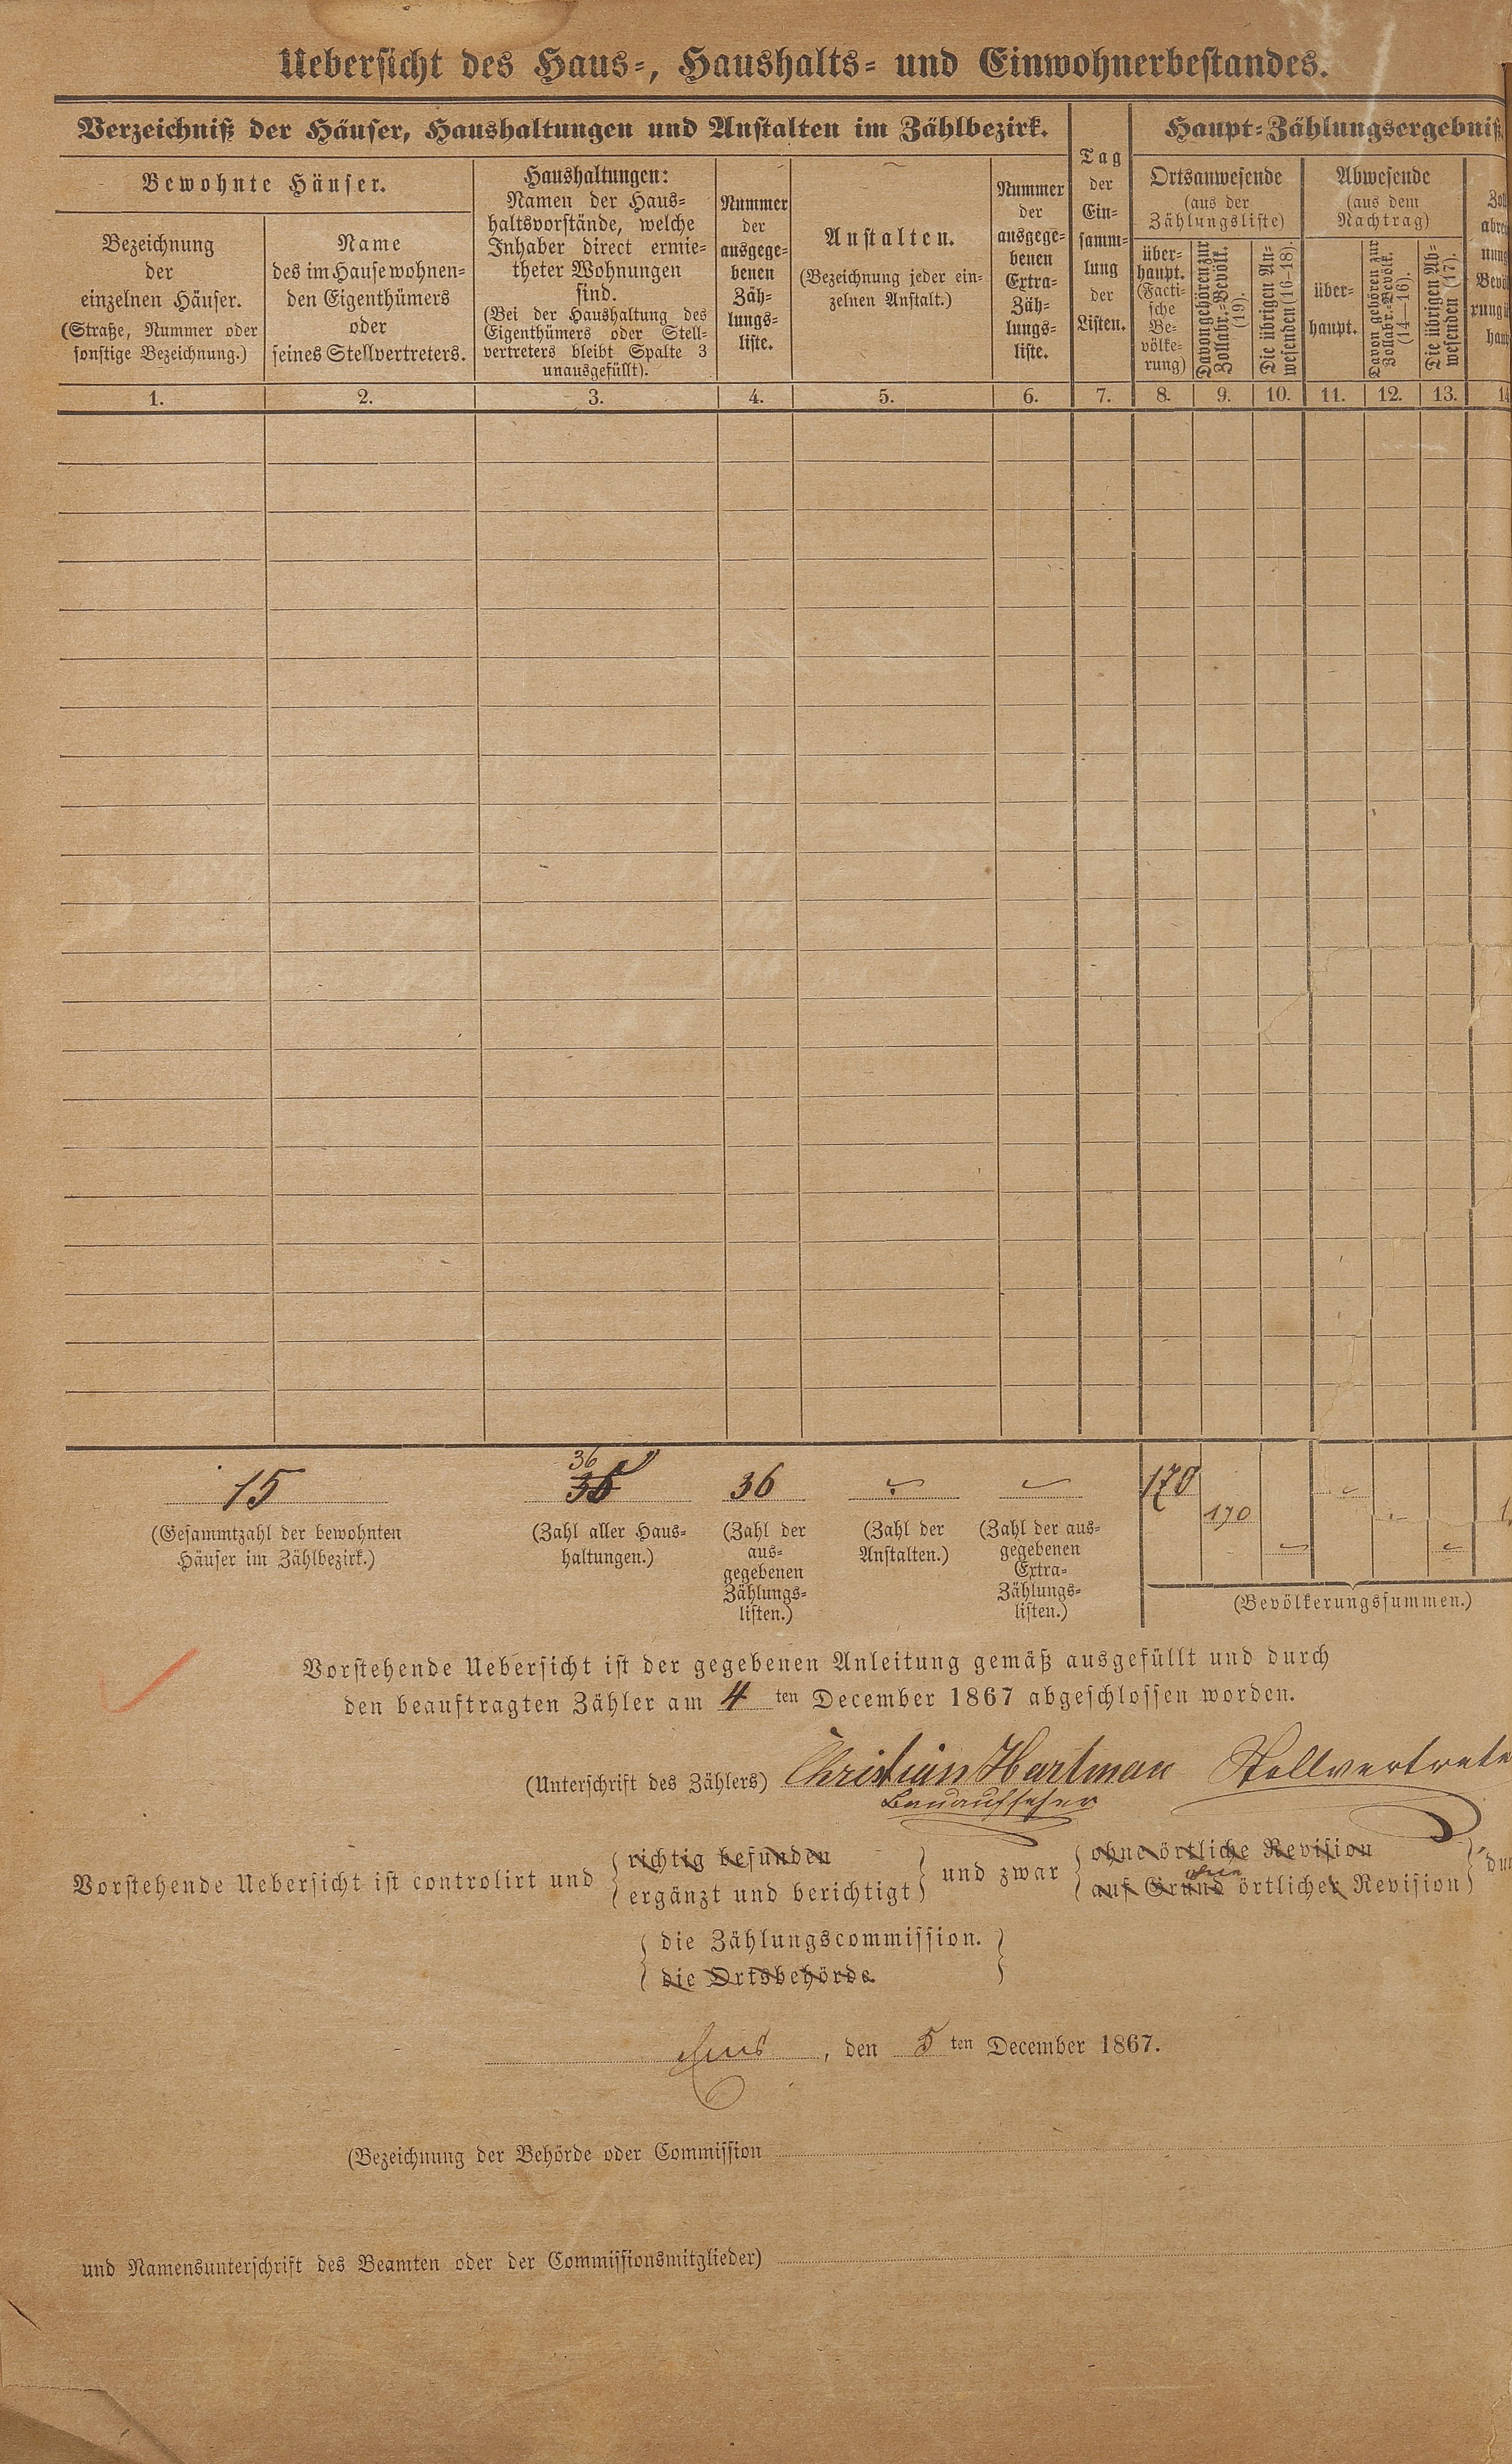 Uebersicht des Haus-, Haushalts- und Einwohnerbestandes.
Verzeichniß der Häuser, Haushaltungen und Anstalten im Zählbezirk.
Haupt-Zählungsergebniß
Bewohnte Häuser.
Bezeichnung
der
einzelnen Häuser.
(Straße, Nummer oder
sonstige Bezeichnung.)
Name
des im Hause wohnen-
den Eigenthümers
oder
seines Stellvertreters.
Haushaltungen:
Namen der Haus-
haltsvorstände, welche
Inhaber direct ermie-
theter Wohnungen
sind.
(Bei der Haushaltung des
Eigenthümers oder Stell-
vertreters bleibt Spalte 3
unausgefüllt).
Nummer
der
ausgege-
benen
Zäh-
lungs-
liste.
Anstalten.
(Bezeichnung jeder ein-
zelnen Anstalt.)
Nummer
der
ausgege-
benen
Extra-
Zäh-
lungs-
liste.
Tag
der
Ein-
samm-
lung
der
Listen.
Ortsanwesende
(aus der
Zählungsliste)
über-
haupt.
(Facti-
sche
Be-
völke-
rung)
Davon gehören zur
Zollabr.-Bevölk.
(19).
Die übrigen An-
wesenden (16-18).
Abwesende
(aus dem
Nachtrag)
über-
haupt.
Davon gehören zur
Zollabr.-Bevölk.
(14-16).
Die übrigen Ab-
wesenden (17).
Zoll
abrech
nung
Bevöl
rung ü
haup
1. 2. 3. 4. 5. 6. 7. 8. 9. 10. 11. 12. 13. 14
15
36
35
36
170
170
(Gesammtzahl der bewohnten
Häuser im Zählbezirk.)
(Zahl aller Haus-
haltungen.)
(Zahl der
aus-
gegebenen
Zählungs-
listen.)
(Zahl der
Anstalten.)
(Zahl der aus-
gegebenen
Extra-
Zählungs-
listen.)
(Bevölkerungssummen.)
Vorstehende Uebersicht ist der gegebenen Anleitung gemäß ausgefüllt und durch
den beauftragten Zähler am 4 ten December 1867 abgeschlossen worden.
(Unterschrift des Zählers) Christian Hartman Stellvertrete
Bauaufseher
Vorstehende Uebersicht ist controlirt und
richtig befunden
ergänzt und berichtigt
und zwar
ohne örtliche Revision
ohne
auf Grund örtlicher Revision
du
die Zählungscommission.
die Ortsbehörde.
Ems, den 5 ten December 1867.
(Bezeichnung der Behörde oder Commission
und Namensunterschrift des Beamten oder der Commissionsmitglieder)